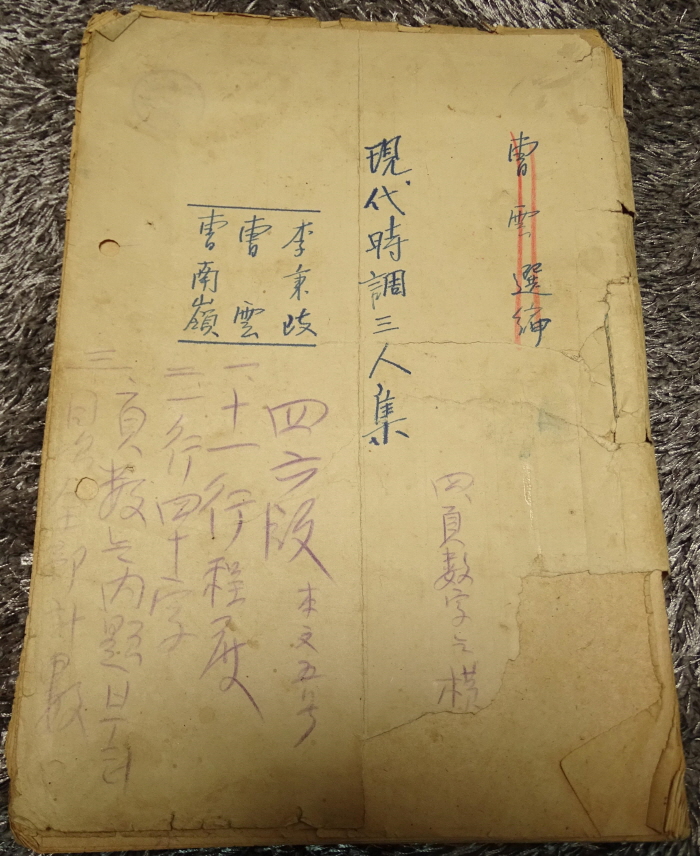 曺雲選編
現代時調三人集
李秉岐
曺雲
曺南嶺
四六版 本文五号
一、十一行程度
二、一行四十字
三、頁数는内題부터
四、頁数字는横